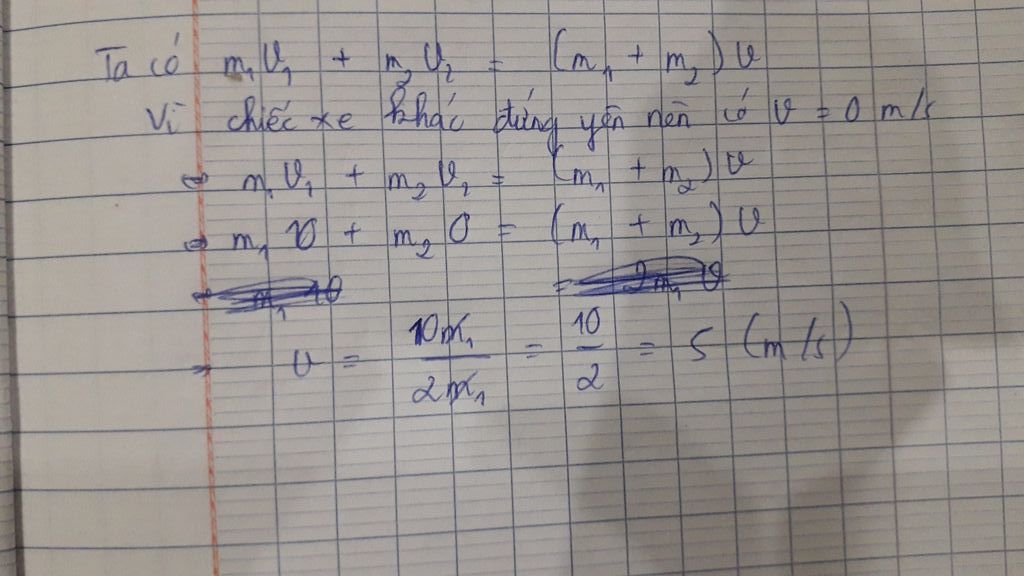 Ta có m₁v₁ + m₂v₂ = (m₁ + m₂)v
Vì chiếc xe khác đứng yên nên có v = 0 m/s
⇔ m₁v₁ + m₂v₂ = (m₁ + m₂)v
⇔ m₁ 10 + m₂ 0 = (m₁ + m₂)v
⇒ v = 10m₁/2m₁ = 10/2 = 5 (m/s)